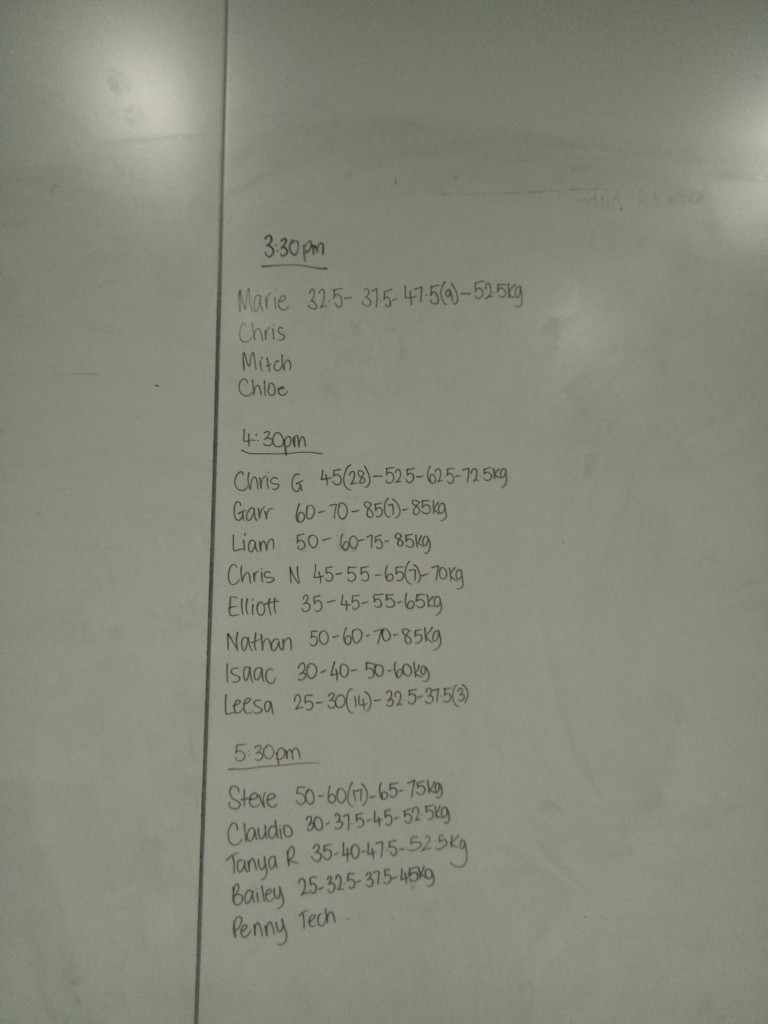 3:30pm
Marie 32.5- 37.5- 47.5(9)-52.5kg
Chris
Mitch
Chloe
4:30pm
Chris G 45(28)-52.5-62.5-72.5kg
Garr 60-70-85(7)-85kg
Liam 50-60-75-85kg
Chris N 45-55-65(7)-70kg
Elliott 35-45-55-65kg
Nathan 50-60-70-85kg
Isaac 30-40-50-60kg
Leesa 25-30(14)-32.5-37.5(3)
5:30pm
Steve 50-60(17)-65-75kg
Claudio 30-37.5-45-52.5kg
Tanya R 35-40-47.5-52.5kg
Bailey 25-32.5-37.5-45kg
Penny Tech